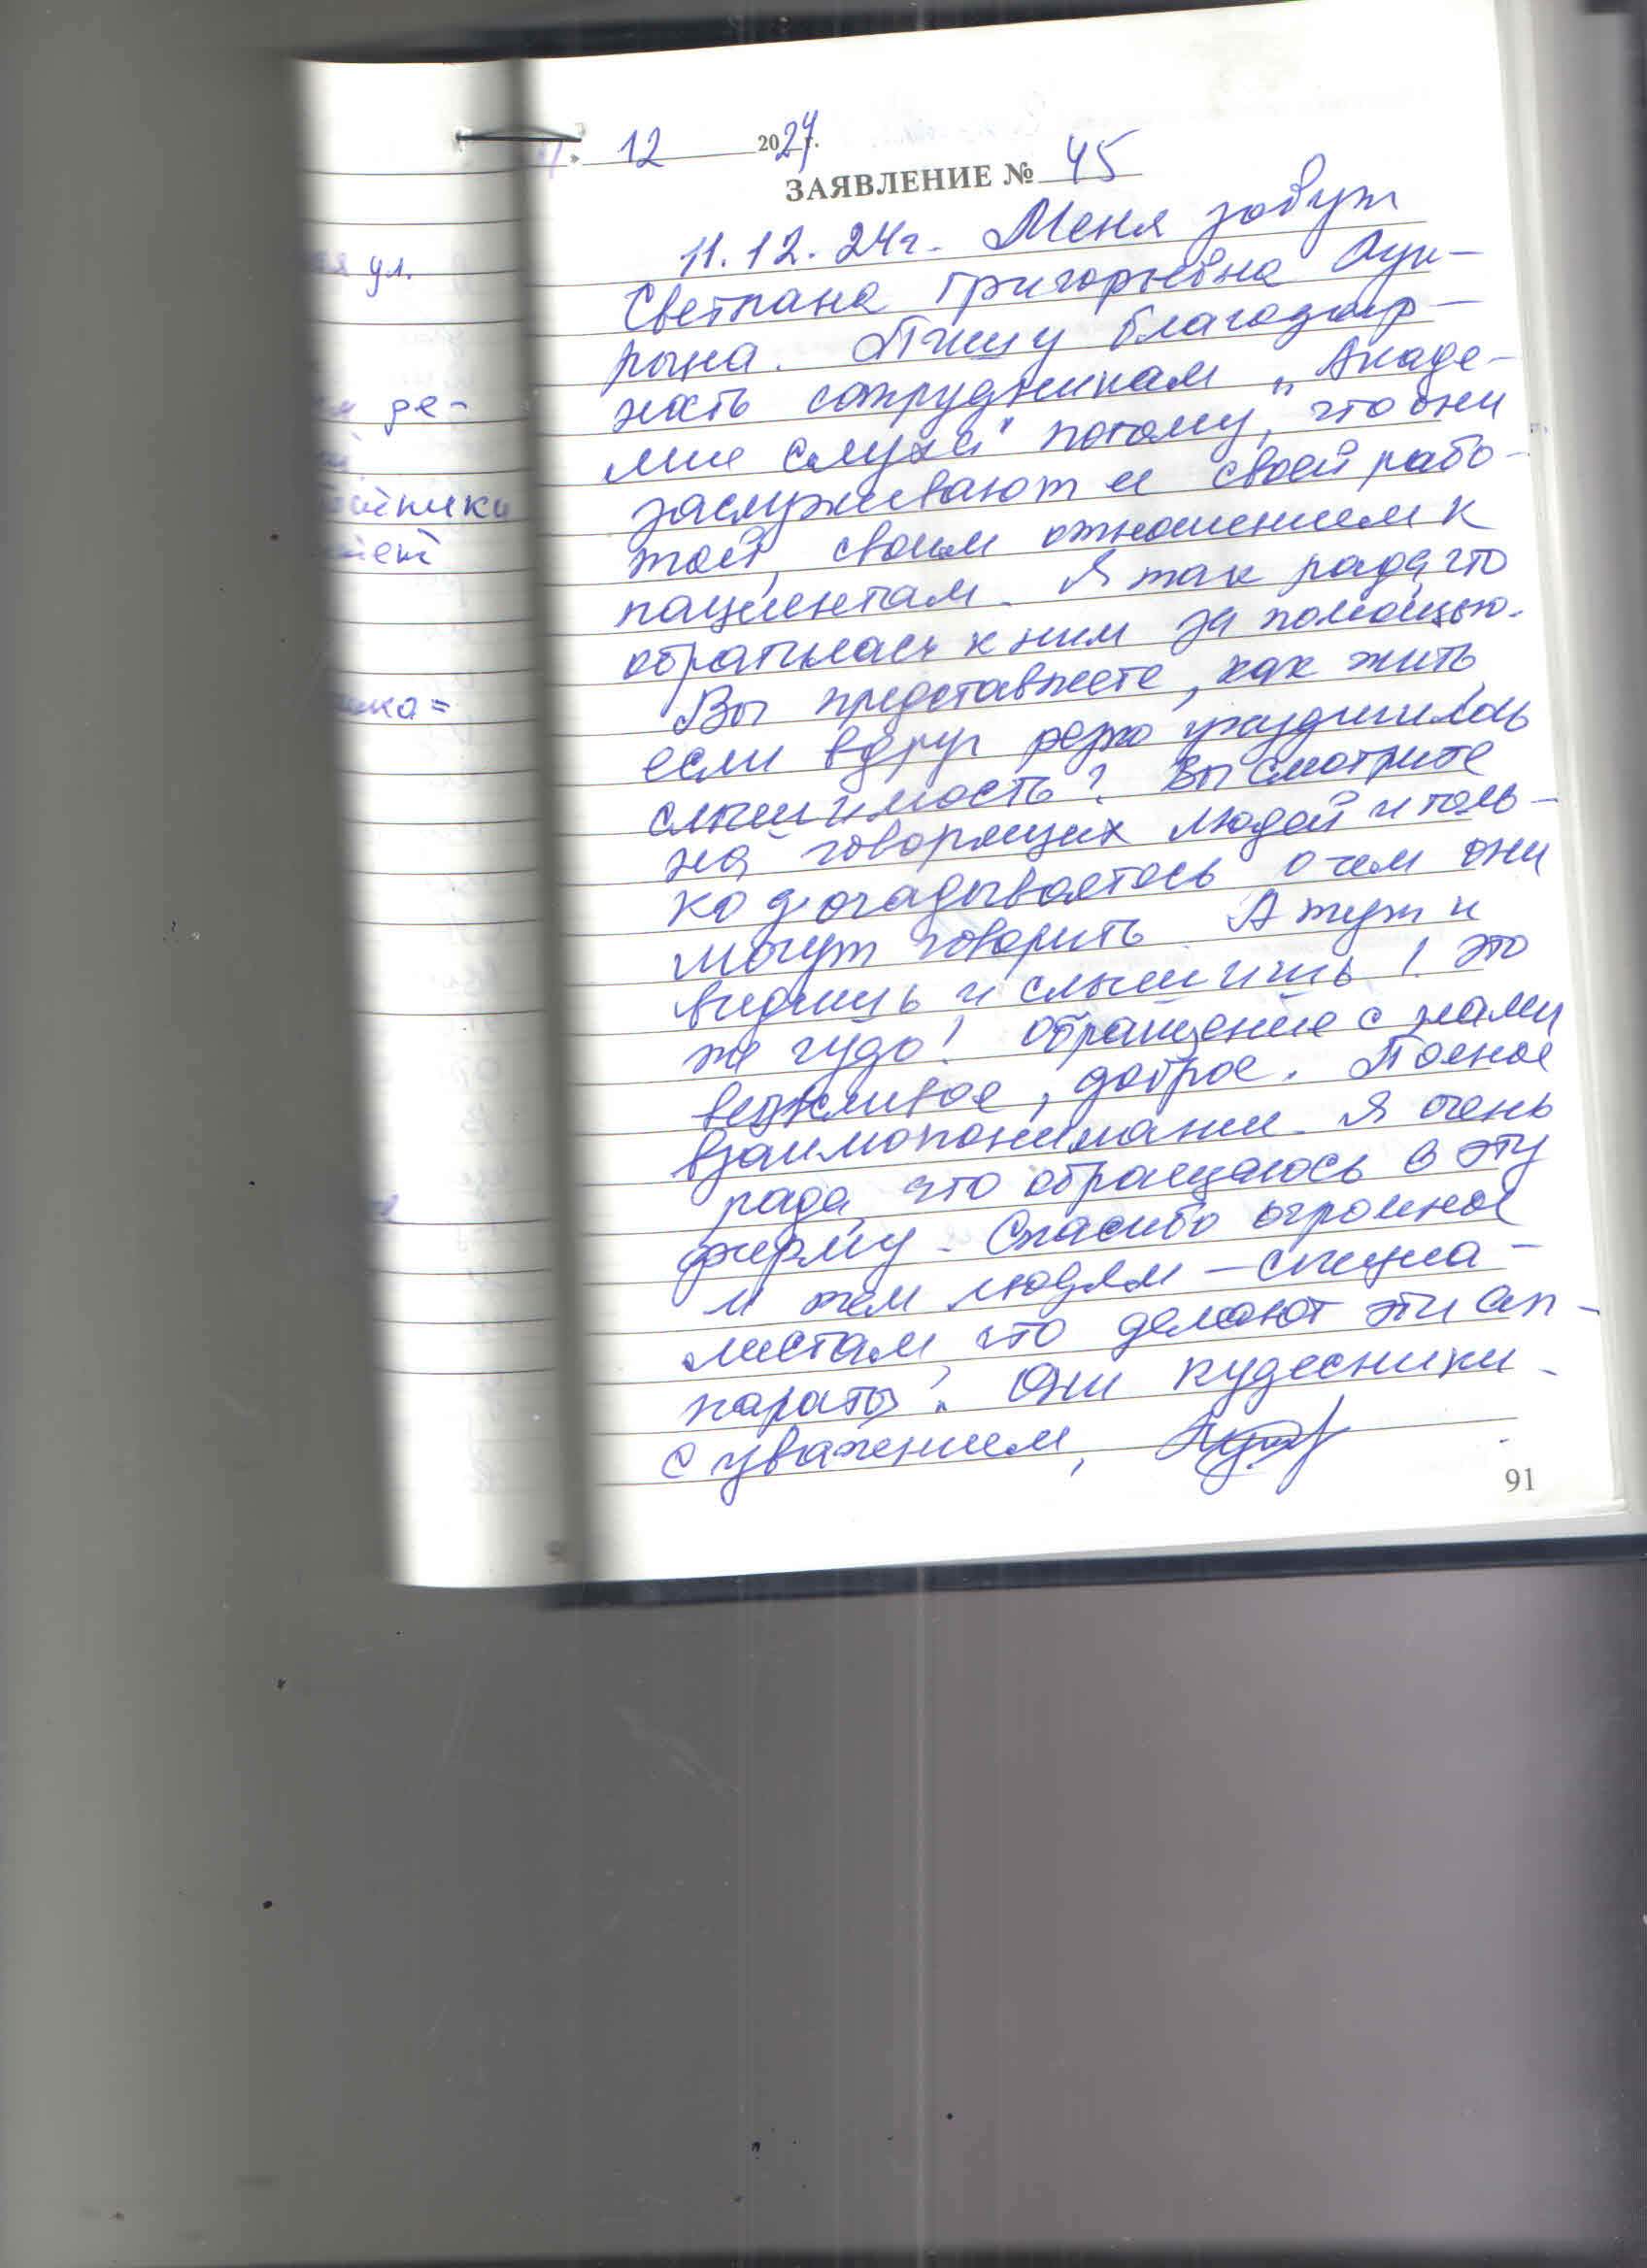 12 2024 г.
ЗАЯВЛЕНИЕ № 45
11.12.24г. Меня зовут
Светлана Григорьевна
Пишу благодар-
ность сотрудникам "Акаде-
мие слуха" потому, что они
заслуживают и своей рабо-
той, своим отношением к
пациентам. Я так рада, что
обратилась к ним за помощью.
Вы представляете, как жить,
если вдруг резко ухудшилась
слышимость? Вы смотрите
на говорящих людей и толь-
ко догадываетесь о чем они
могут говорить. А тут и
видишь и слышишь! Это
же чудо! Обращение с нами
вежливое, доброе. Полное
взаимопонимание. Я очень
рада, что обращаюсь в эту
фирму. Спасибо огромное
и тем людям - специа-
листам, что делают эти ап-
параты. Они кудесники.
С уважением,
91
ул.
де-